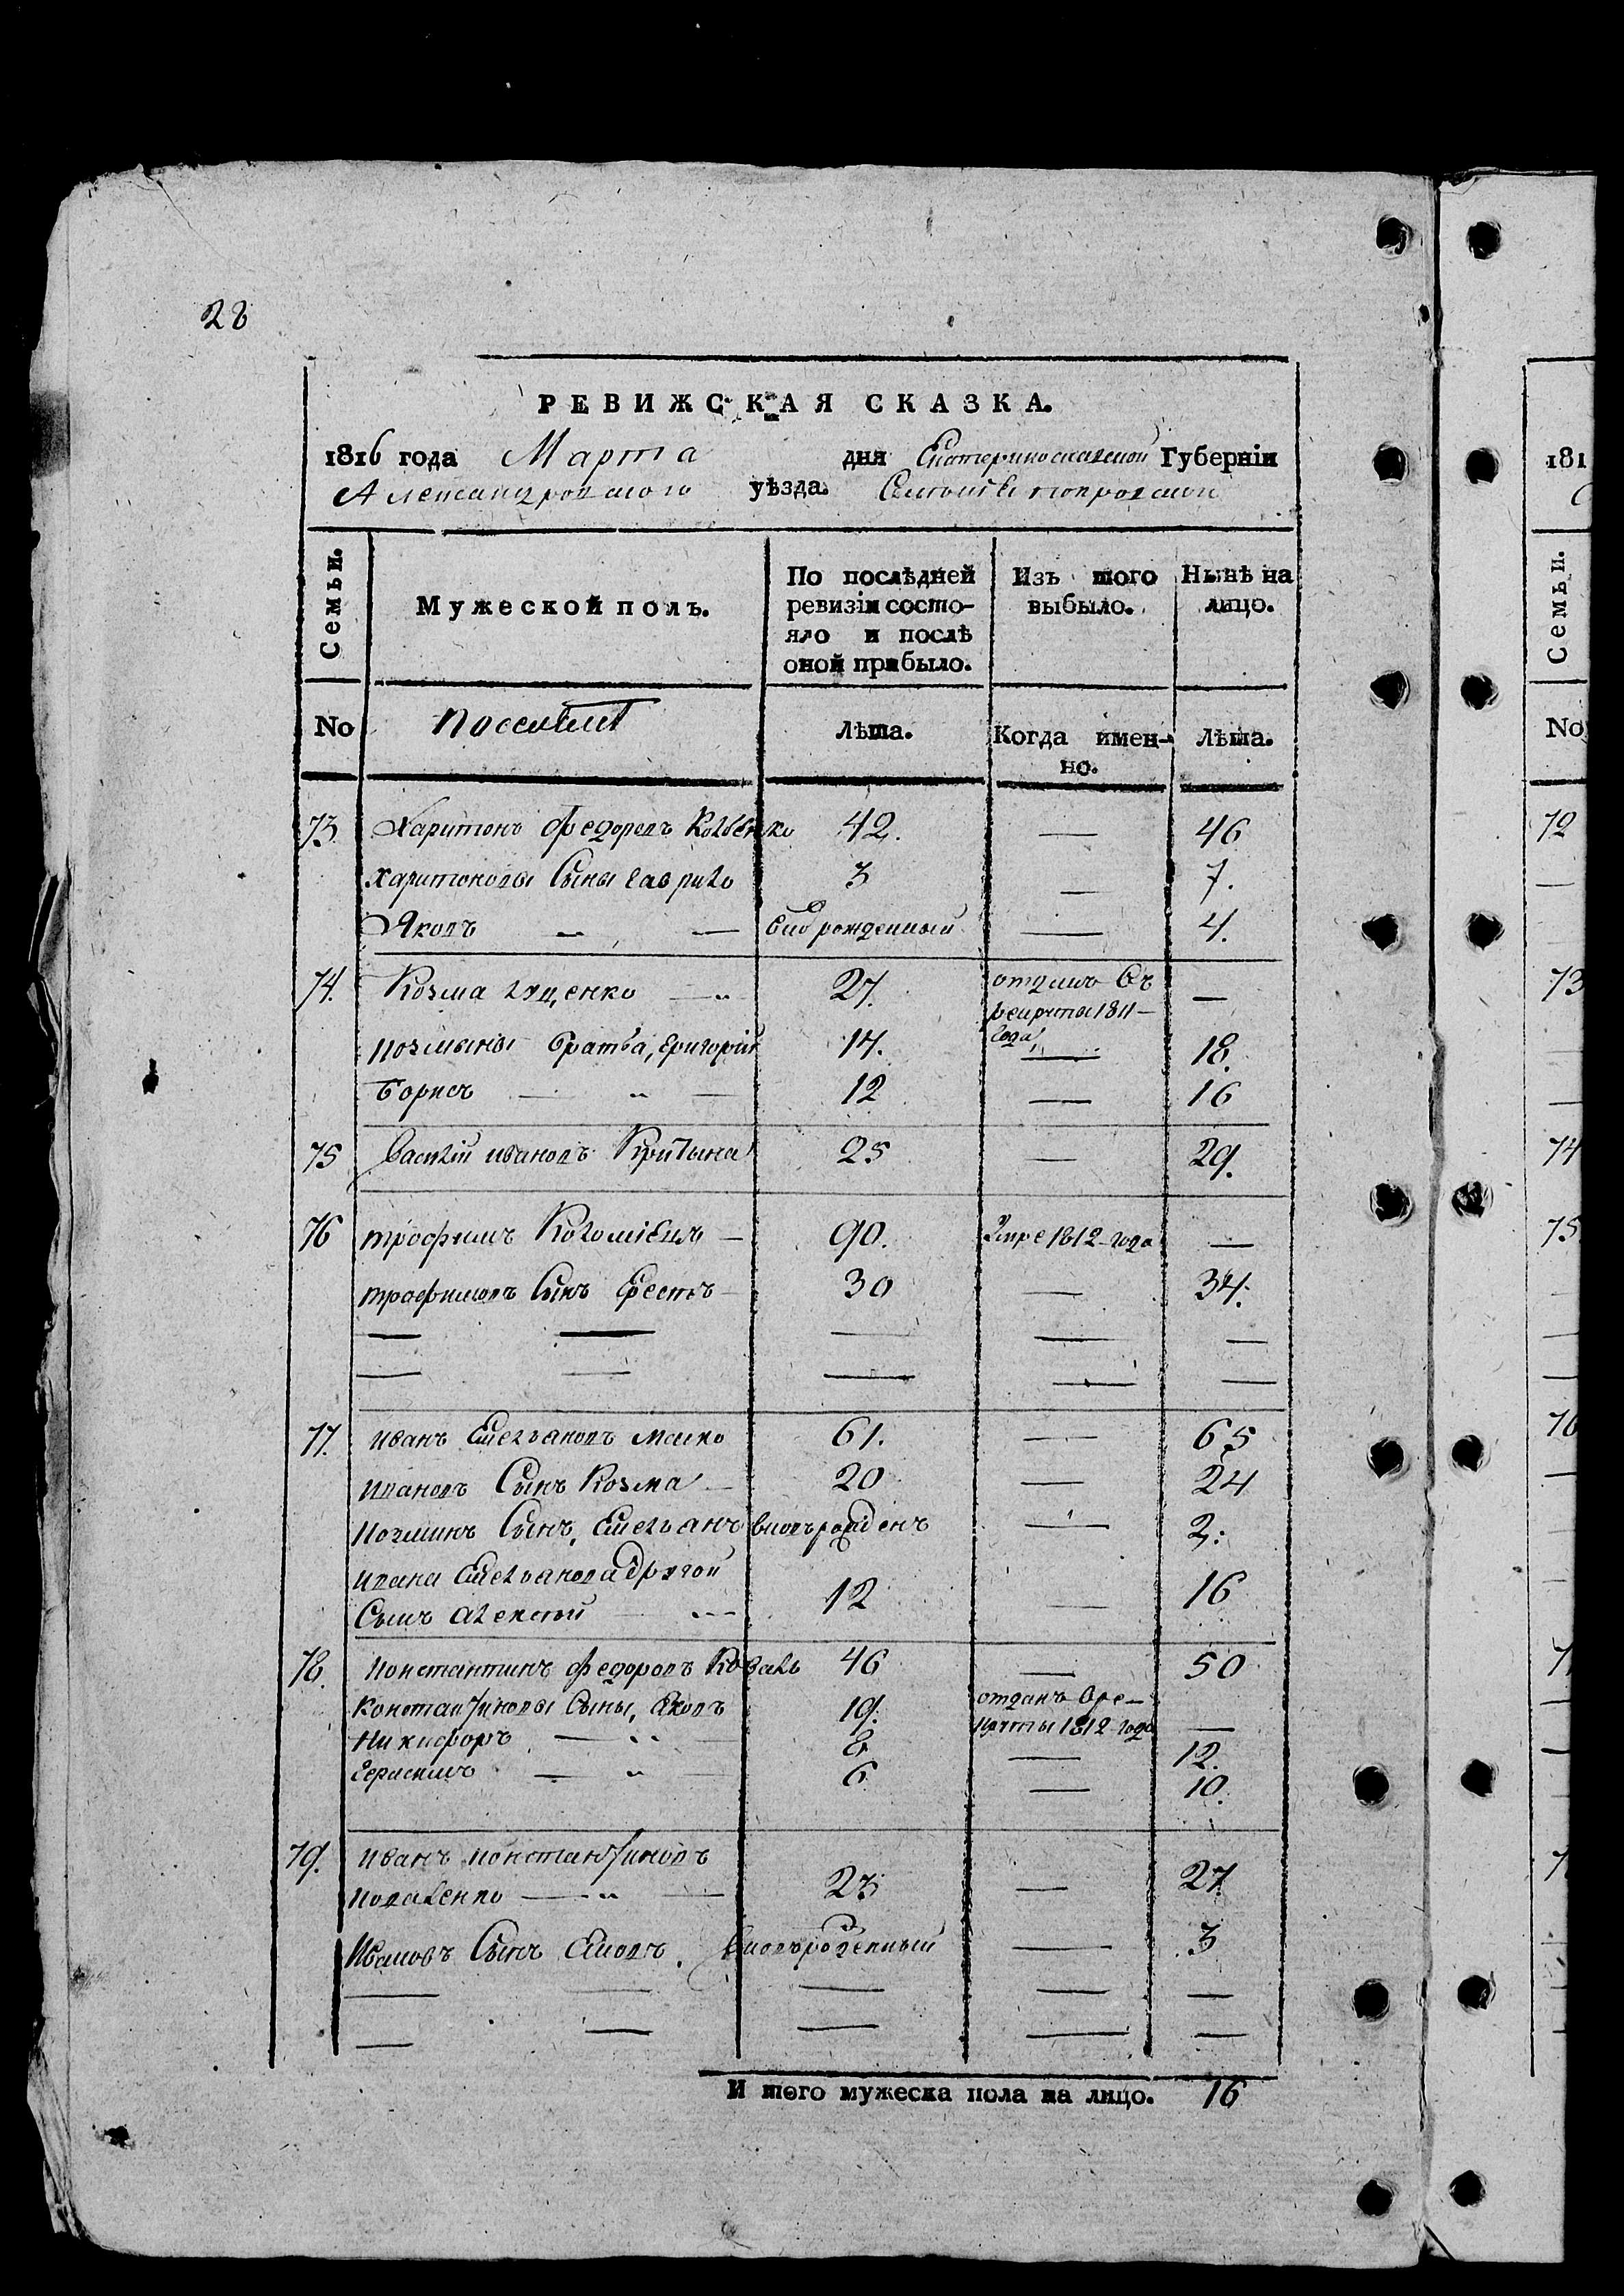 28
РЕВИЖСКАЯ СКАЗКА.
1816 года Марта дня Екатеринославской Губерніи
Александровского уѣзда.
Семьи. Мужеской полъ. По послѣдней ревизіи состо- яло и послѣ оной прибыло. Изъ того выбыло. Нынѣ на лицо.
No Лѣта. Когда имен- но. Лѣта.
73 Харитонъ Федоровъ 42. — 46
Харитоновы Сыны Гаврило 3 — 7.
Яковъ — — — 4.
74. Козма 27. отданъ въ рекруты 1811 — года —
Козмины братья, Григорій 14. — 18.
Борисъ — — 12 — 16
75 Василій Ивановъ 25 — 29.
76 Трофимъ Коломіецъ — 90. Умре 1812 года —
Трофимовъ Сынъ — 30 — 34.
— — — — —
— — — — —
77. Иванъ Емельяновъ 61. — 65
Ивановъ Сынъ Козма — 20 — 24
Козминъ Сынъ, Емельянъ вновьрожденъ — 2.
Ивана Емельянова другой
Сынъ Алексѣй — 12 — 16
78. Константинъ Федоровъ Коваль 46 — 50
Константиновы Сыны, Яковъ 19. отданъ вре- круты 1812 года —
Никифоръ — 8 — 12.
Герасимъ — — 6 — 10.
79. Иванъ Константиновъ
Коваленко — — 23 — 27.
Ивановъ Сынъ — 3
— — — — —
— — — — —
И того мужеска пола на лицо. 16
181
Семьи.
No
72
73
74
75
76